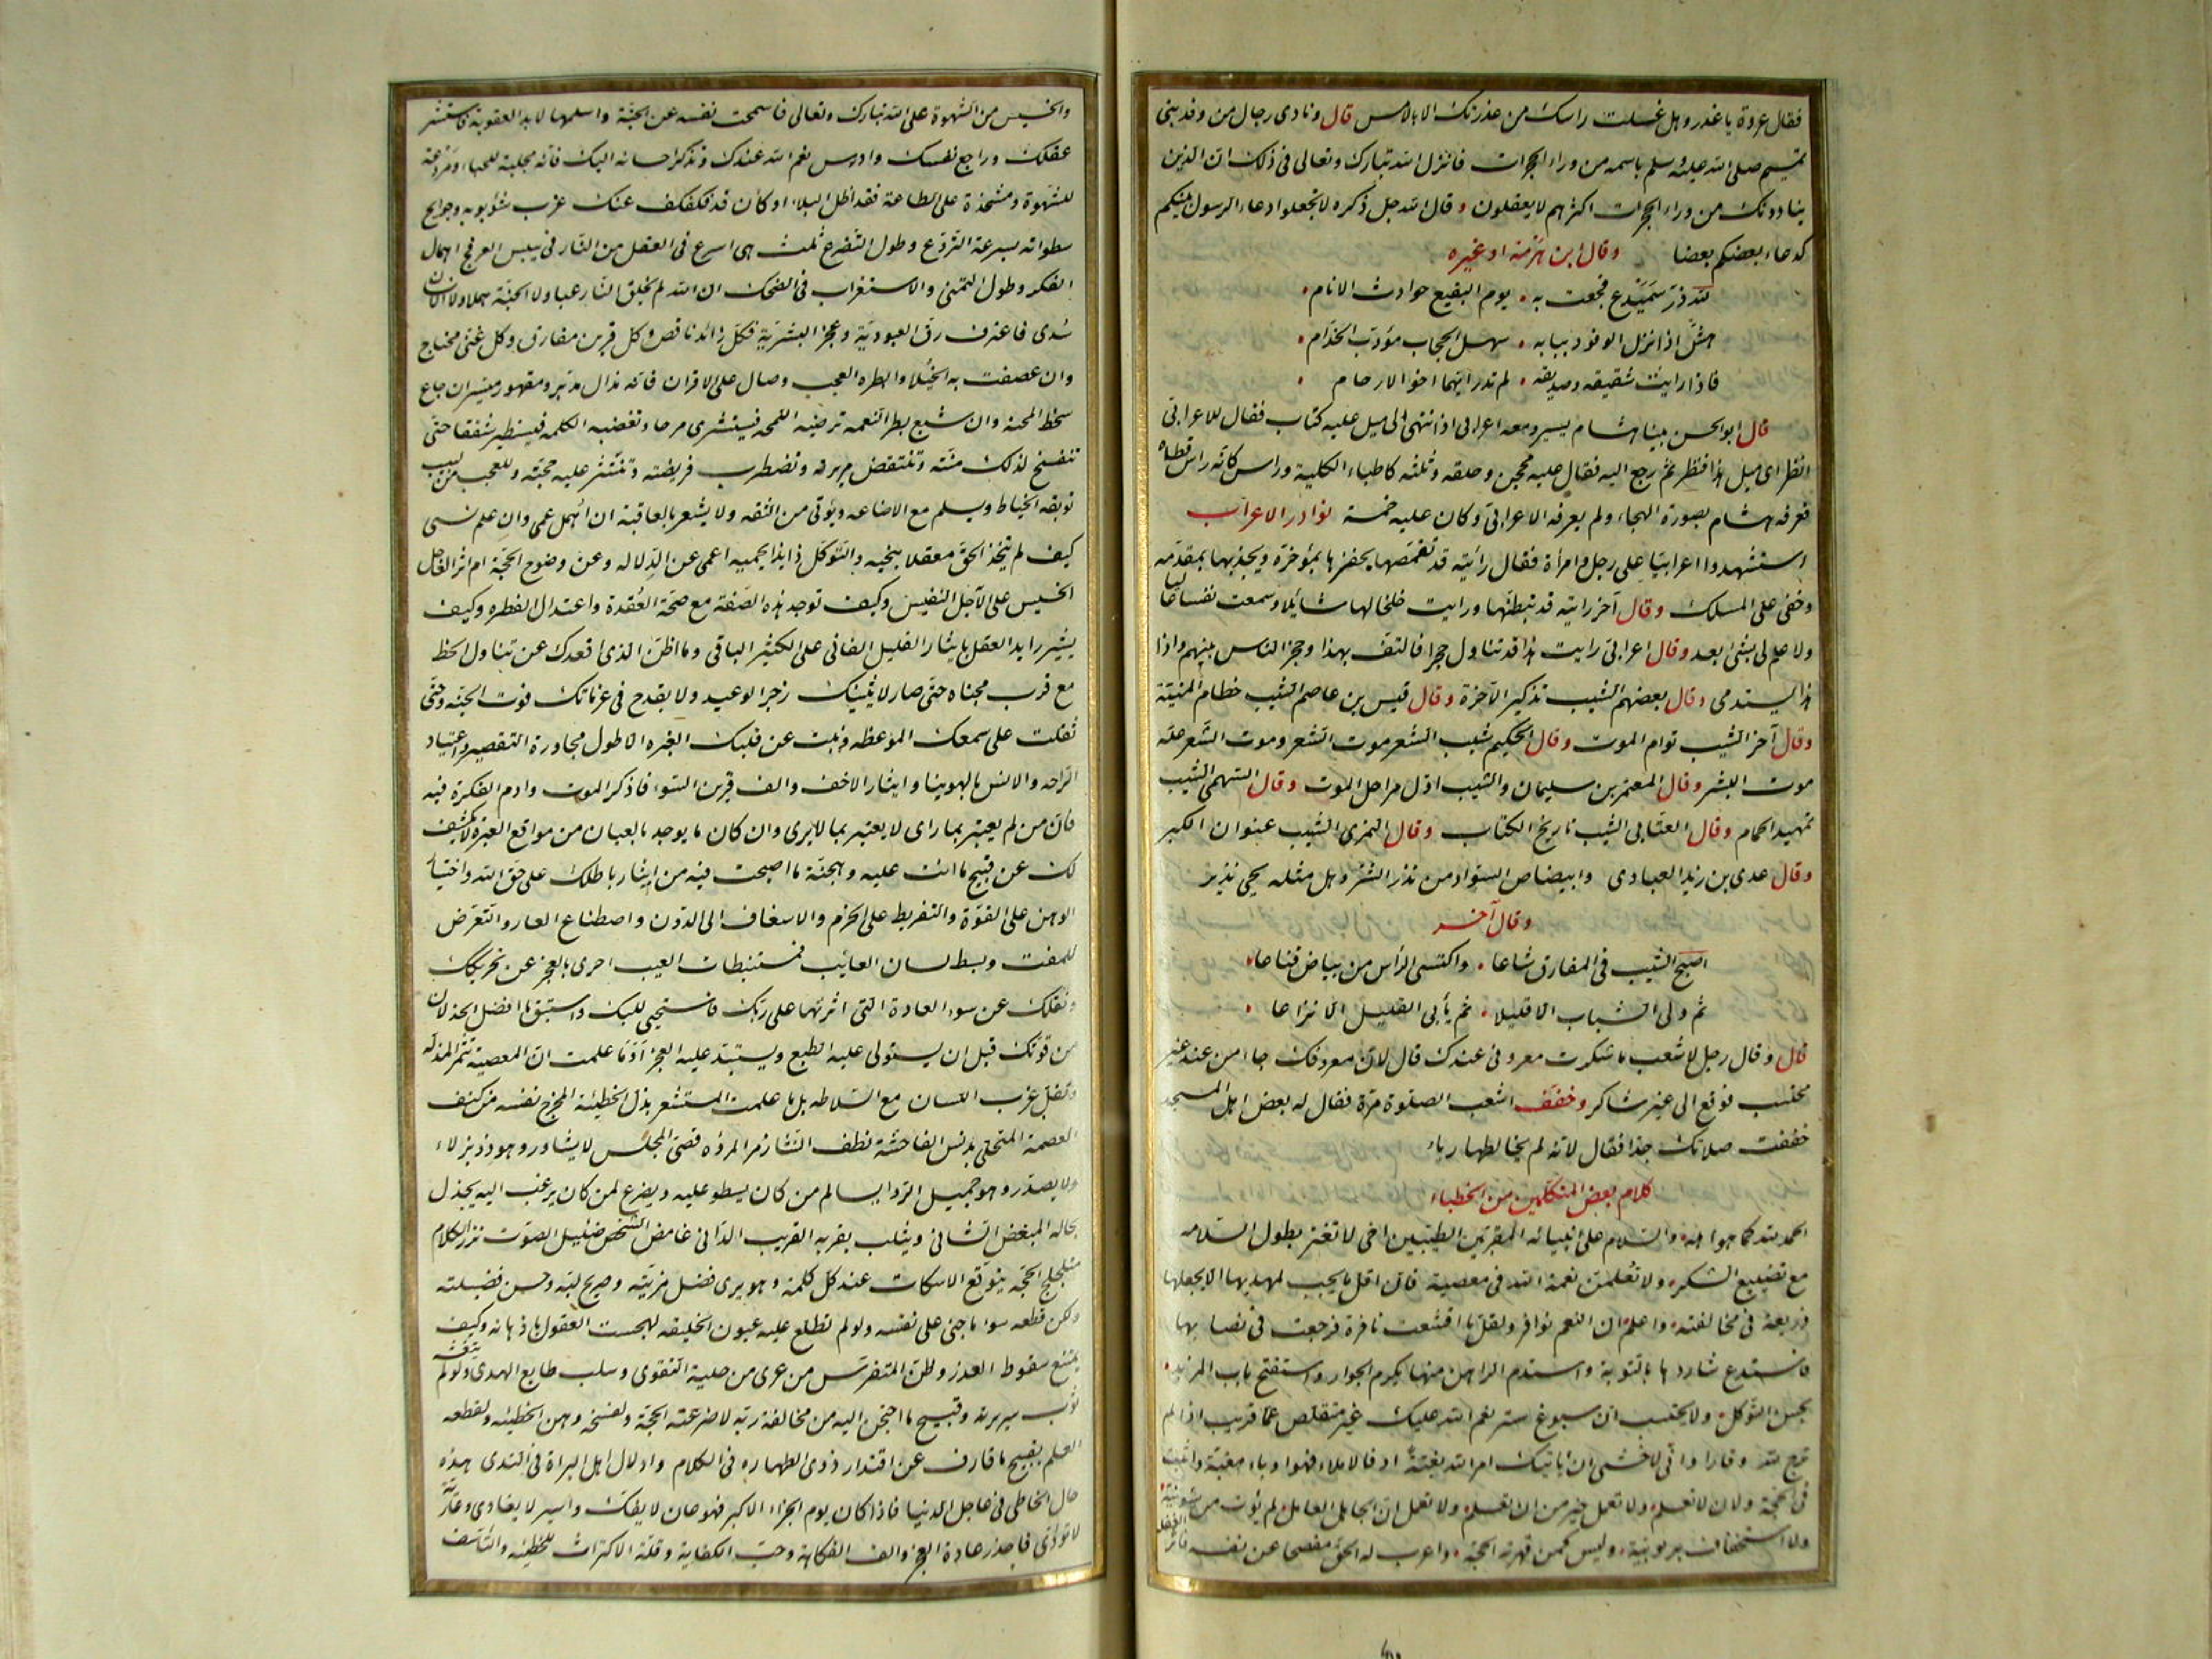 فقال عروة يا غدر وهل غسلت راسك من غدرتك الا بالامس قال ونادى رجال من وفد بنى
تميم صلى الله عليه وسلم باسمه من وراء الحجرات فانزل الله تبارك وتعالى فى ذلك ان الذين
ينادونك من وراء الحجرات اكثرهم لا يعقلون وقال الله جل ذكره لا تجعلوا دعاء الرسول بينكم
كدعاء بعضكم بعضا وقال ابن هرمة او غيره
لله در سميدع فجعت به يوم البقيع حوادث الايام
هش اذا نزل الوفود ببابه سهل الحجاب مؤدب الخدام
فاذا رايت شقيقه وصديقه لم تدر ايهما اخو الارحام
قال ابو الحسن بينا هشام يسير ومعه اعرابى اذ انتهى الى ميل عليه كتاب فقال للاعرابى
انظر اى ميل هذا فنظر ثم رجع اليه فقال عليه محجن وحلقه وثلثه كاطباء الكلبة وراس كانه راس قطاه
فعرفه هشام بصورة الهجاء ولم يعرفه الاعرابى وكان عليه خمسة نوادر الاعراب
استشهدوا اعرابيا على رجل وامراة فقال رائيته قد تقمصها يحفزها بمؤخره ويجذبها بمقدمه
وخفى على المسلك وقال آخر رايته قد تبطنها ورايت خلخالها شائلا وسمعت نفسا عاليا
ولا علم لى بشئ بعد وقال اعرابى رايت هذا قد تناول حجرا فالتف بهذا وحجز الناس بينهم واذا
هذا يستدمى وقال بعضهم الشيب نذير الآخرة وقال قيس بن عاصم الشيب خطام المنية
وقال آخر الشيب توام الموت وقال الحكيم شيب الشعر موت الشعر وموت الشعر علة
موت البشر وقال المعتمر بن سليمان والشيب اول مراحل الموت وقال السهمى الشيب
تمهيد الحمام وقال العتابى الشيب تاريخ الكتاب وقال النمرى الشيب عنوان الكبر
وقال عدى بن زيد العبادى وابيضاض السواد من نذر الشر وهل مثله يحيى نذير
وقال آخر
اصبح الشيب فى المفارق شاعا واكتسى الراس من بياض قناعا
ثم ولى الشباب الا قليلا ثم يأبى القليل الا نزاعا
قال وقال رجل لاشعب ما شكرت معروفى عندك قال لان معروفك جاء من عند غير
محتسب فوقع الى غير شاكر وخفف اشعب الصلوة مرة فقال له بعض اهل المسجد
خففت صلاتك جدا فقال لانه لم يخالطها رياء
كلام بعض المتكلمين من الخطباء
الحمد لله كما هو اهله والسلام على انبيائه المقربين الطيبين اخى لا تغتر بطول السلامه
مع تضييع الشكر ولا تعملن نعمة الله فى معصية فان اقل ما يجب لمهديها الا يجعلها
ذريعة فى مخالفته واعلم ان النعم نوافر ولقل ما اقشعت نافرة فرجعت فى نصابها
فاستدع شاردها بالتوبة واستدم الراهن منها بكرم الجوار واستفتح باب المزيد
بحسن التوكل ولا يحتسب ان سبوغ ستر نعم الله عليك غير متقلص عما قريب اذا لم
ترج لله وقارا وانى لاخشى ان ياتيك امر الله بغتة او فالاملاء فهو اوباء مغبة واثبت
فى الحجة ولان لا تعلم ولا تعمل خير من ان تعلم ولا تعمل ان الجاهل العامل لم يؤت من سوء نية
ولا استخفاف بربوبية وليس كمن قهرته الحجة واعرب له الحق مفصحا عن نفسه فاثر الغفلة
والخسيس من الشهوة على الله تبارك وتعالى فاسمحت نفسه عن الجنة واسلمها لابد العقوبة فاستشر
عقلك وراجع نفسك وادرس نعم الله عندك وتذكر احسانه اليك فانه مجلبة للحياء ومردعة
للشهوة ومشحذة على الطاعة فقد اظل البلاء او كان قد فكفكف عنك غرب شؤبوبه وجوائح
سطواته بسرعة النزوع وطول التضرع ثلث هى اسرع فى العقل من النار فى يبيس العرفج اهمال
الفكر وطول التمنى والاستغراب فى الضحك ان الله لم يخلق النار عبثا ولا الجنة هملا ولا الانسان
سدى فاعترف رق العبودية وعجز البشرية فكل زائد ناقص وكل قرين مفارق وكل غنى محتاج
وان عصفت به الخيلاء وابطره العجب وصال على الاقران فانه مذال مدبر ومقهور ميسر ان جاع
سخط المحنة وان شبع بطر النعمة ترضيه اللمحة فيستشرى مرحا وتغضبه الكلمة فيستطير شققا حتى
تنفسخ لذلك منته وتنتقض مريرته وتضطرب فريصته وتنتشر عليه حجته وللعجب من لبيب
توبقه الحياط ويسلم مع الاضاعه ويؤتى من الثقه ولا يشعر بالعاقبة ان اهمل عمى وان علم نسى
كيف لم يتخذ الحق معقلا ينجيه والتوكل ذايدا يحميه اعمى عن الدلاله وعن وضوح الحجة ام اثر العاجل
الخسيس على الآجل النفيس وكيف توجد هذه الصفة مع صحة العقدة واعتدال الفطره وكيف
يشير رايد العقل بايثار القليل الفانى على الكثير الباقى وما اظن الذى اقعدك عن تناول الحظ
مع قرب مجتناه حتى صار لا يثنيك زجر الوعيد ولا يقدح فى عزماتك فوت الجنه وحتى
ثقلت على سمعك الموعظه ونبت عن قلبك العبره الا طول مجاورة التقصير واعتياد
الراحه والانس بالهوينا وايثار الاخف والف قرين السوء فاذكر الموت وادم الفكرة فيه
فان من لم يعتبر بما راى لا يعتبر بما لا يرى وان كان ما يوجد بالعيان من مواقع العبرة لا يكشف
لك عن قبيح ما انت عليه وهجنة ما اصبحت فيه من ايثار باطلك على حق الله واختيار
الوهن على القوة والتفريط على الحزم والاسفاف الى الدون واصطناع العار والتعرض
للمقت وبسط لسان العائب فمستنبطات الغيب احرى بالعجز عن تحريكك
ونقلك عن سوء العادة التى اثرتها على ربك فاستحيى للبك واستبق ما افضل الخذلان
من قوتك قبل ان يستولى عليه الطبع ويستبد عليه العجز اوما علمت ان المعصية تثمر المذلة
وتفل غرب اللسان مع السلاطه بل ما علمت المستشعر بذل الخطيئة المخرج نفسه من كنف
العصمة المتحلى بدنس الفاحشة نطف الثنا زمر المروه قصى المجلس لا يشاور وهو ذو بزلاء
ولا يصدر وهو جميل الرواء يسالم من كان يسطو عليه ويضرع لمن كان يرغب اليه يجذل
بحاله المبغض الشانى ويثلب بقربه القريب الدانى غامض الشخص ضئيل الصوت نزر الكلام
متلجلج الحجة يتوقع الاسكات عند كل كلمة وهو يرى فضل مزيته وصريح لبه وحسن فضيلته
ولكن قطعه سوء ما جنى على نفسه ولو لم تطلع عليه عيون الخليقه لهجست العقول باذهانه وكيف
يمتنع سقوط القدر وظن المتفرس من عرى من حلية التقوى وسلب طابع الهدى ولو لم يتغشه
ثوب سريرته وقبيح ما احتجن اليه من مخالفة ربه لاضرعته الحجة ولفسخه وهن الخطيئه ولقطعه
العلم بقبيح ما قارف عن اقتدار ذوى الطهاره فى الكلام وادلال اهل البراة فى الندى هذه
حال الخاطى فى عاجل الدنيا فاذا كان يوم الجزاء الاكبر فهو عان لا يفك واسير لا يفادى وعارية
لا تؤدى فاحذر عادة العجز والف الفكاهة وحب الكفاية وقلة الاكتراث للخطيئه والتاسف